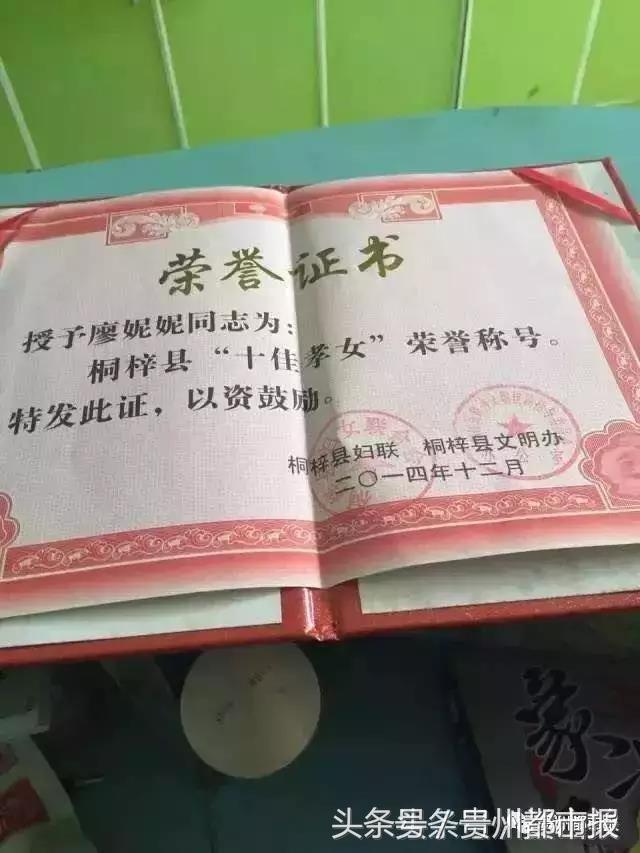 荣誉证书
授予廖妮妮同志为：
桐梓县“十佳孝女”荣誉称号。
特发此证，以资鼓励。
桐梓县妇联 桐梓县文明办
二〇一四年十二月
头条号
贵州都市报